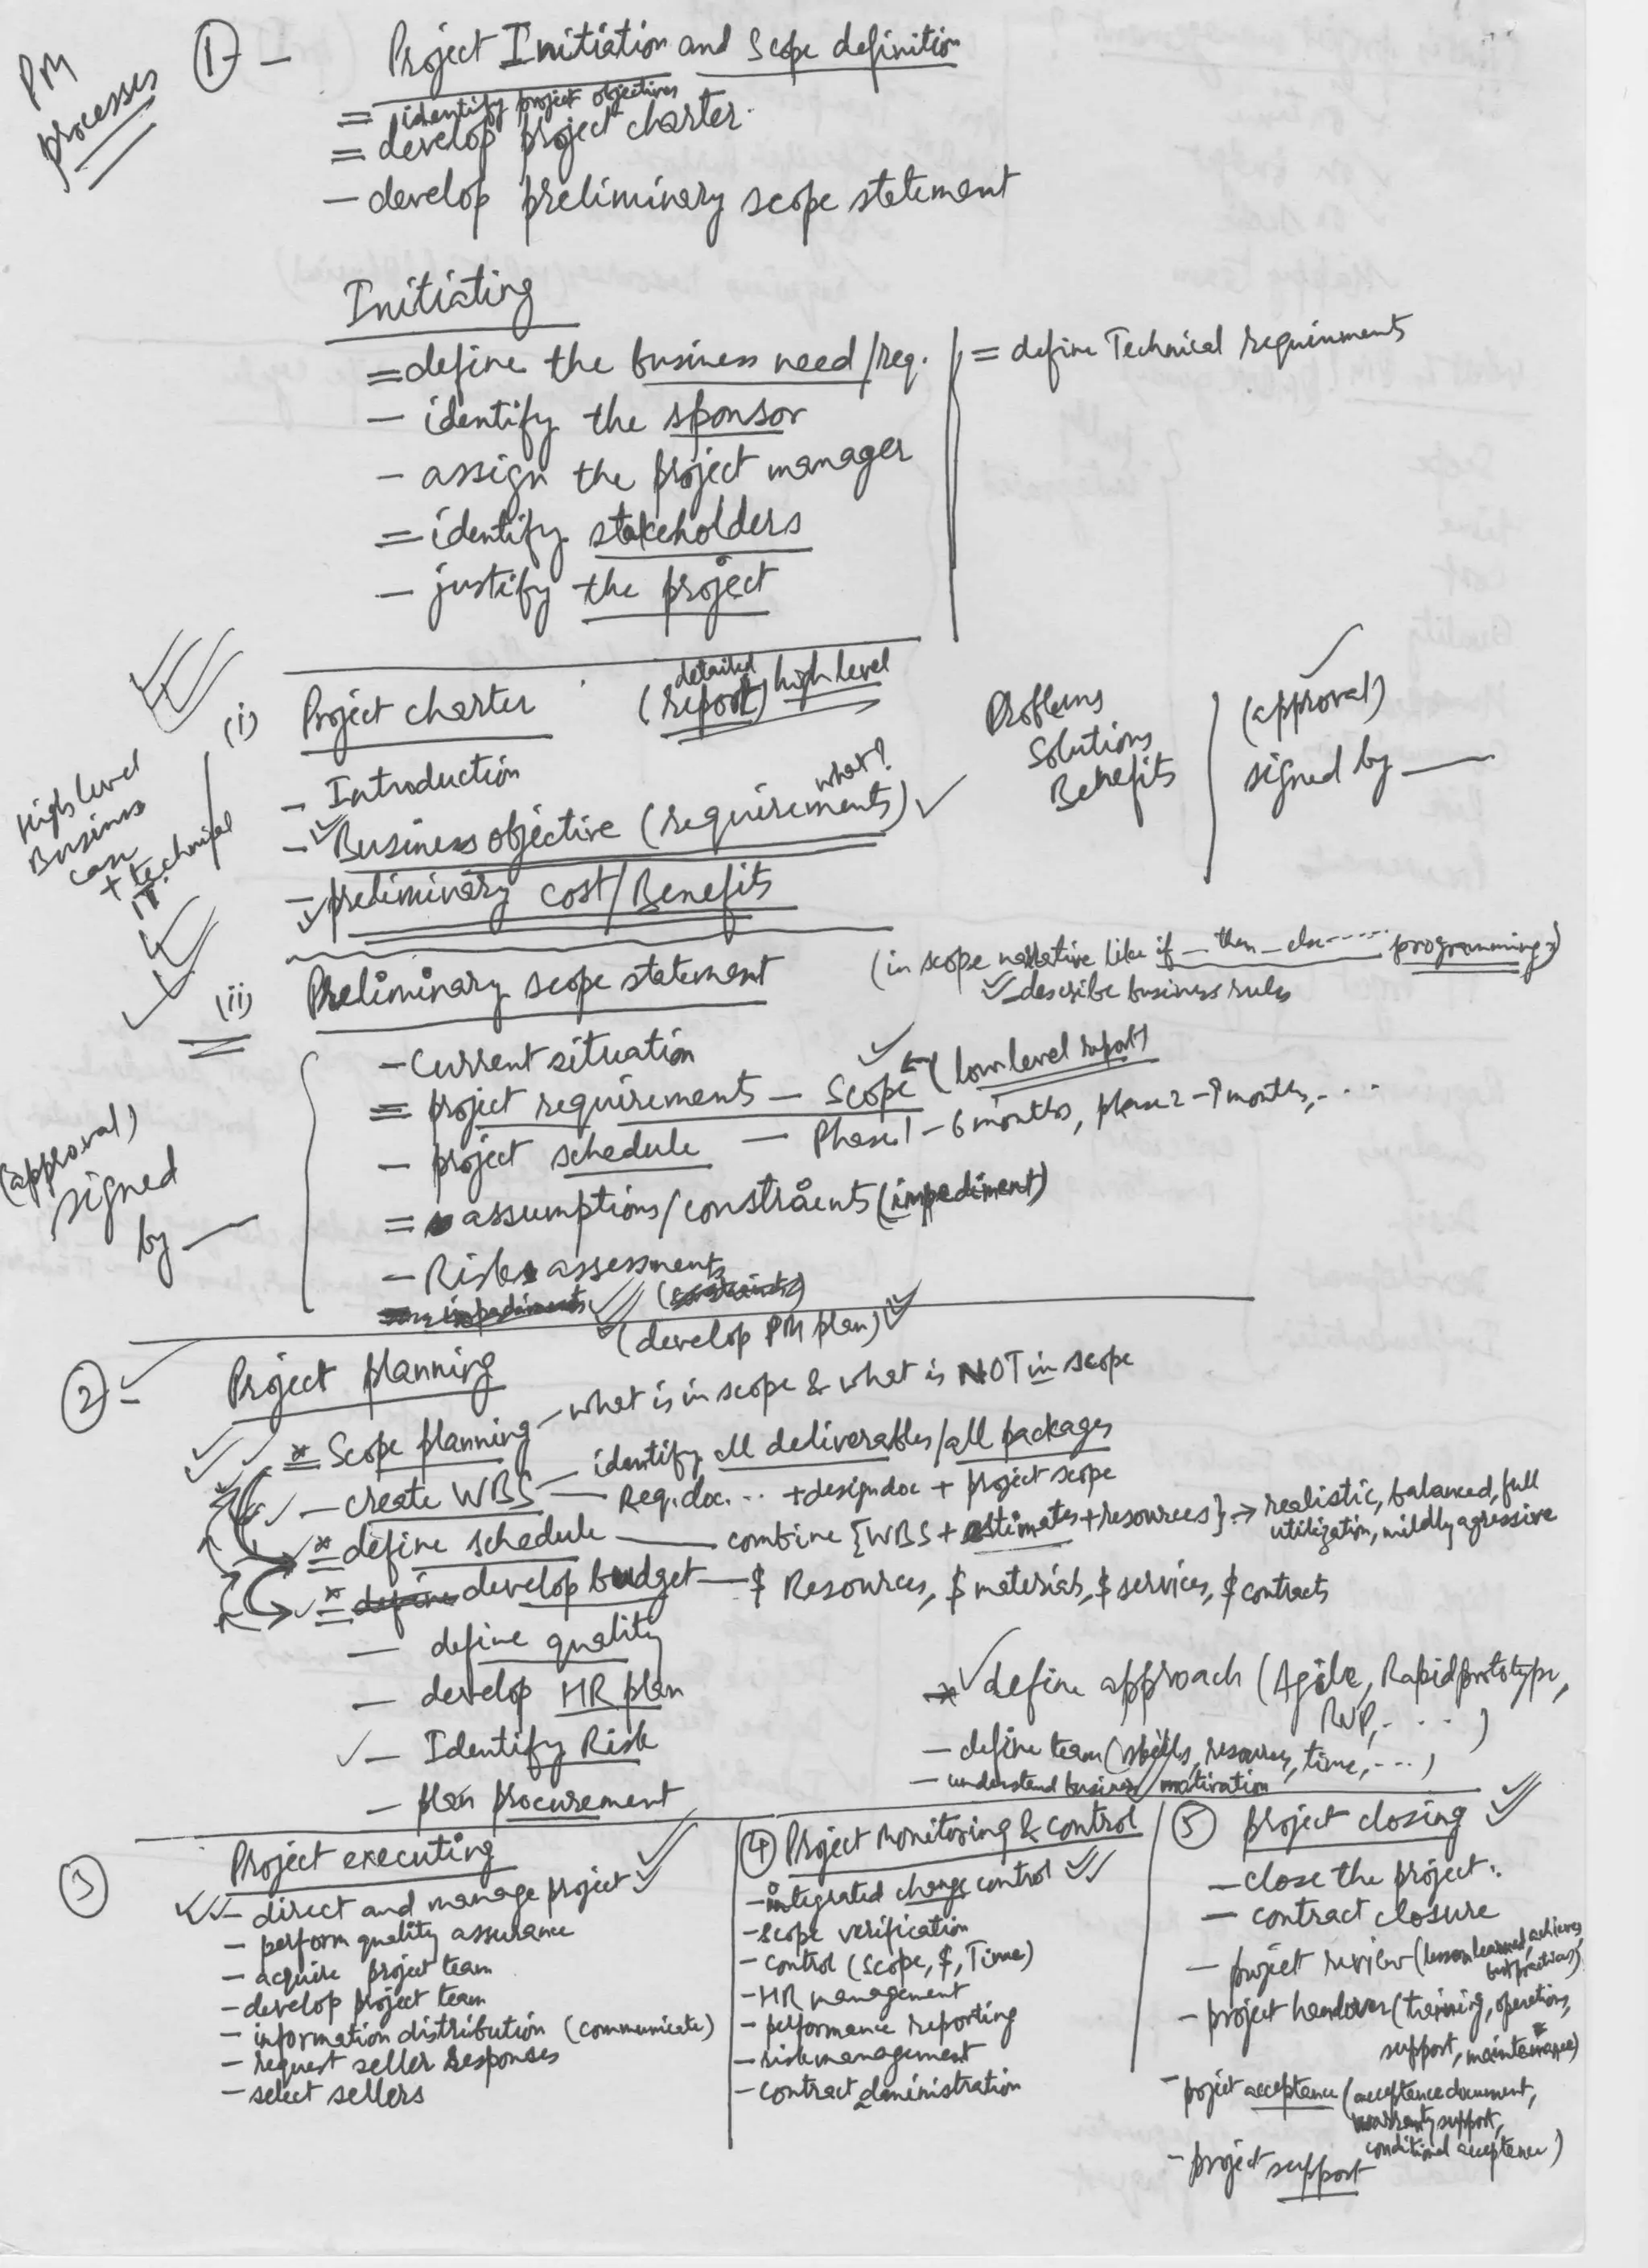 PM
processes
① - Project Initiation and Scope definition
= identify project objectives
= develop project charter.
- develop preliminary scope statement
Initiating
= define the business need/req. = define Technical requirments
- identify the sponsor
- assign the project manager
= identify stakeholders
- justify the project
(i) Project charter (detailed report) high level
Problems
Solutions
Benefits
(approval)
signed by ___
High level
Business
case
+ technical
IT.
- Introduction
- Business objective (requirements) what?
- preliminary cost/Benefits
(ii) Preliminary scope statement
(in scope narrative like if _ then _ else ...... programming)
describe business rules
(approval)
signed
by ___
- Current situation
= project requirements - Scope (low level report)
- project schedule - Phase 1 - 6 months, phase 2 - 9 months, ....
= assumptions/constraints (impediment)
- Risk assessments
② - Project planning (develop PM plan)
* = Scope planning - what is in scope & what is NOT in scope
- create WBS - identify all deliverables/all packages
- Req. doc. .. + design doc + project scope
* = define schedule - combine {WBS + estimates + resources} → realistic, balanced, full
utilization, mildly agressive
* = develop budget - $ Resources, $ materials, $ services, $ contracts
- define quality
- develop HR plan
- Identify Risk
- plan procurement
* define approach (Agile, Rapid prototype,
RUP, ....)
- define team (skills, resources, time, ....)
- understand business motivation
③ Project executing
- direct and manage project
- perform quality assurance
- acquire project team
- develop project team
- information distribution (communicate)
- request seller responses
- select sellers
④ Project monitoring & control
- integrated change control
- scope verification
- control (scope, $, Time)
- HR management
- performance reporting
- risk management
- contract administration
⑤ project closing
- close the project.
- contract closure
- project review (lesson learned,
best practices)
- project handover (training, operations,
support, maintenance)
- project acceptance (acceptance document,
warranty support,
conditional acceptance)
- project support